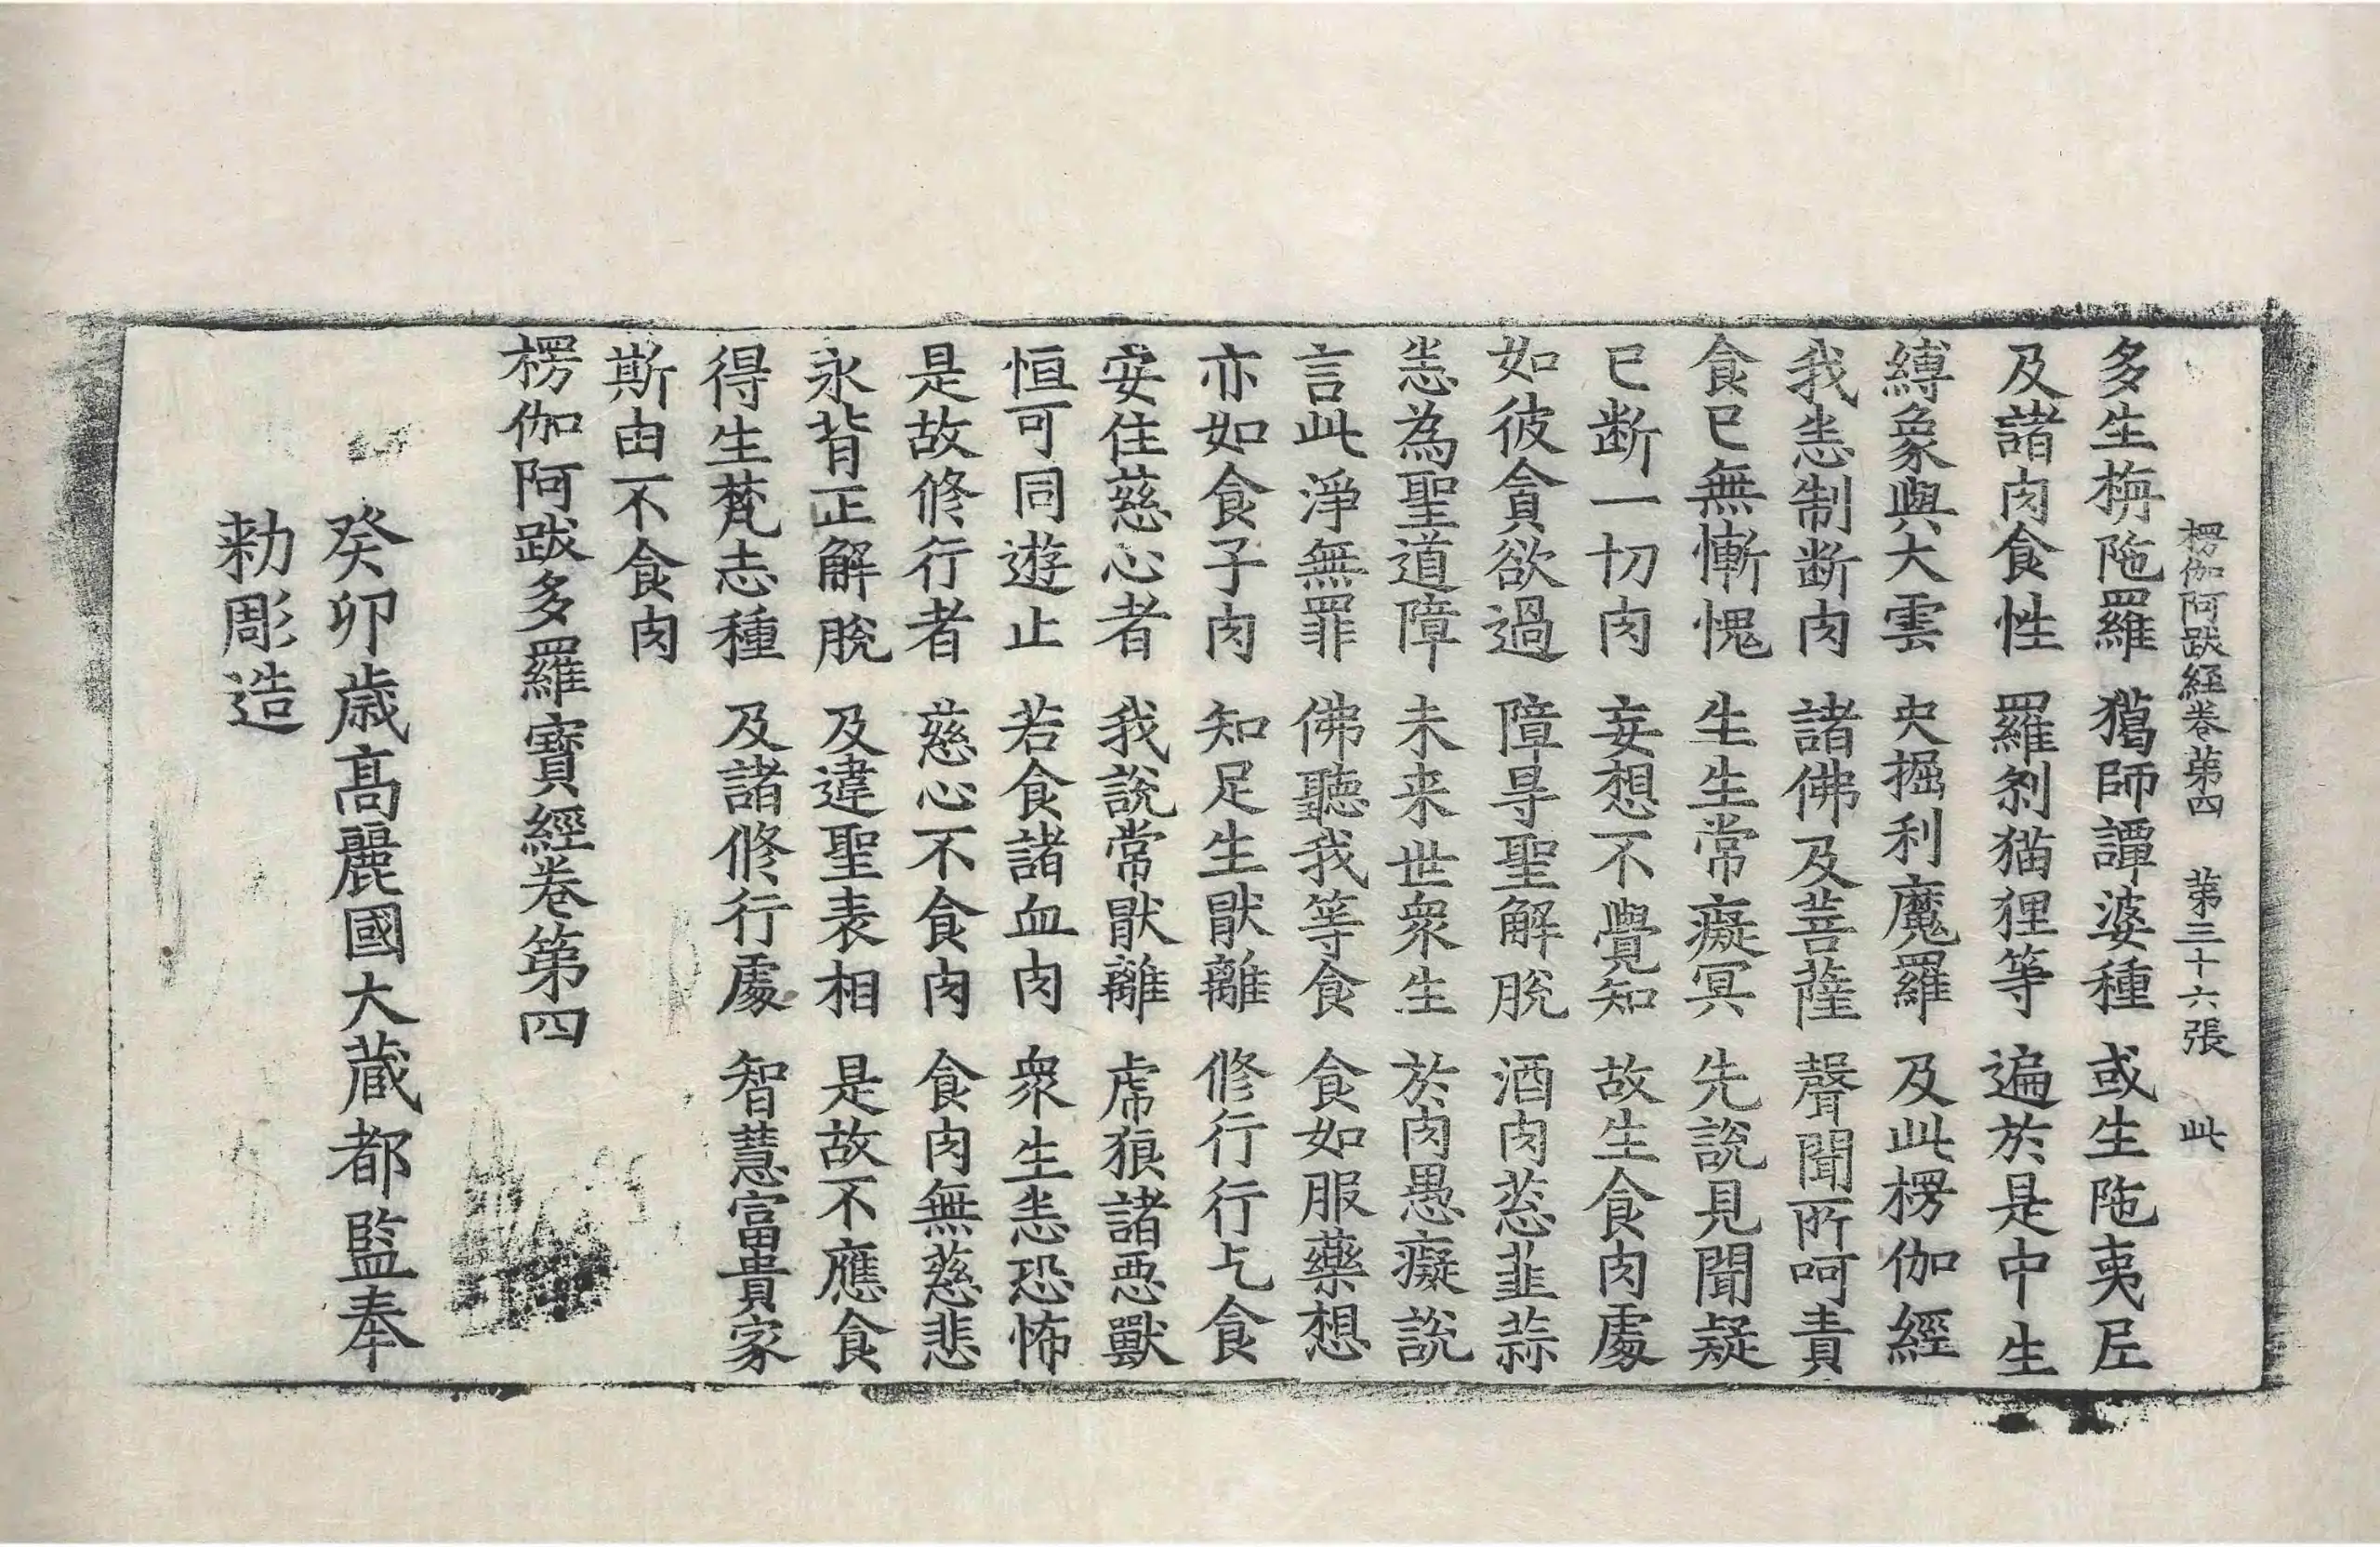 楞伽阿跋經卷苐四　苐三十六張　此
多生栴陁羅　獦師譚婆種　或生陁夷尼
及諸肉食性　羅剎猫狸等　遍於是中生
縛象與大雲　央掘利魔羅　及此楞伽經
我悉制断肉　諸佛及菩薩　聲聞所呵責
食已無慚愧　生生常癡冥　先說見聞疑
已断一切肉　妄想不覺知　故生食肉處
如彼貪欲過　障㝵聖解脫　酒肉葱韮蒜
悉為聖道障　未来世衆生　於肉愚癡說
言此淨無罪　佛聽我等食　食如服藥想
亦如食子肉　知足生猒離　修行行乞食
安住慈心者　我說常猒離　虎狼諸惡獸
恒可同遊止　若食諸血肉　衆生悉恐怖
是故修行者　慈心不食肉　食肉無慈悲
永背正解脫　及違聖表相　是故不應食
得生梵志種　及諸修行處　智慧富貴家
斯由不食肉
楞伽阿跋多羅寶經卷第四
癸卯歲高麗國大藏都監奉
勑彫造